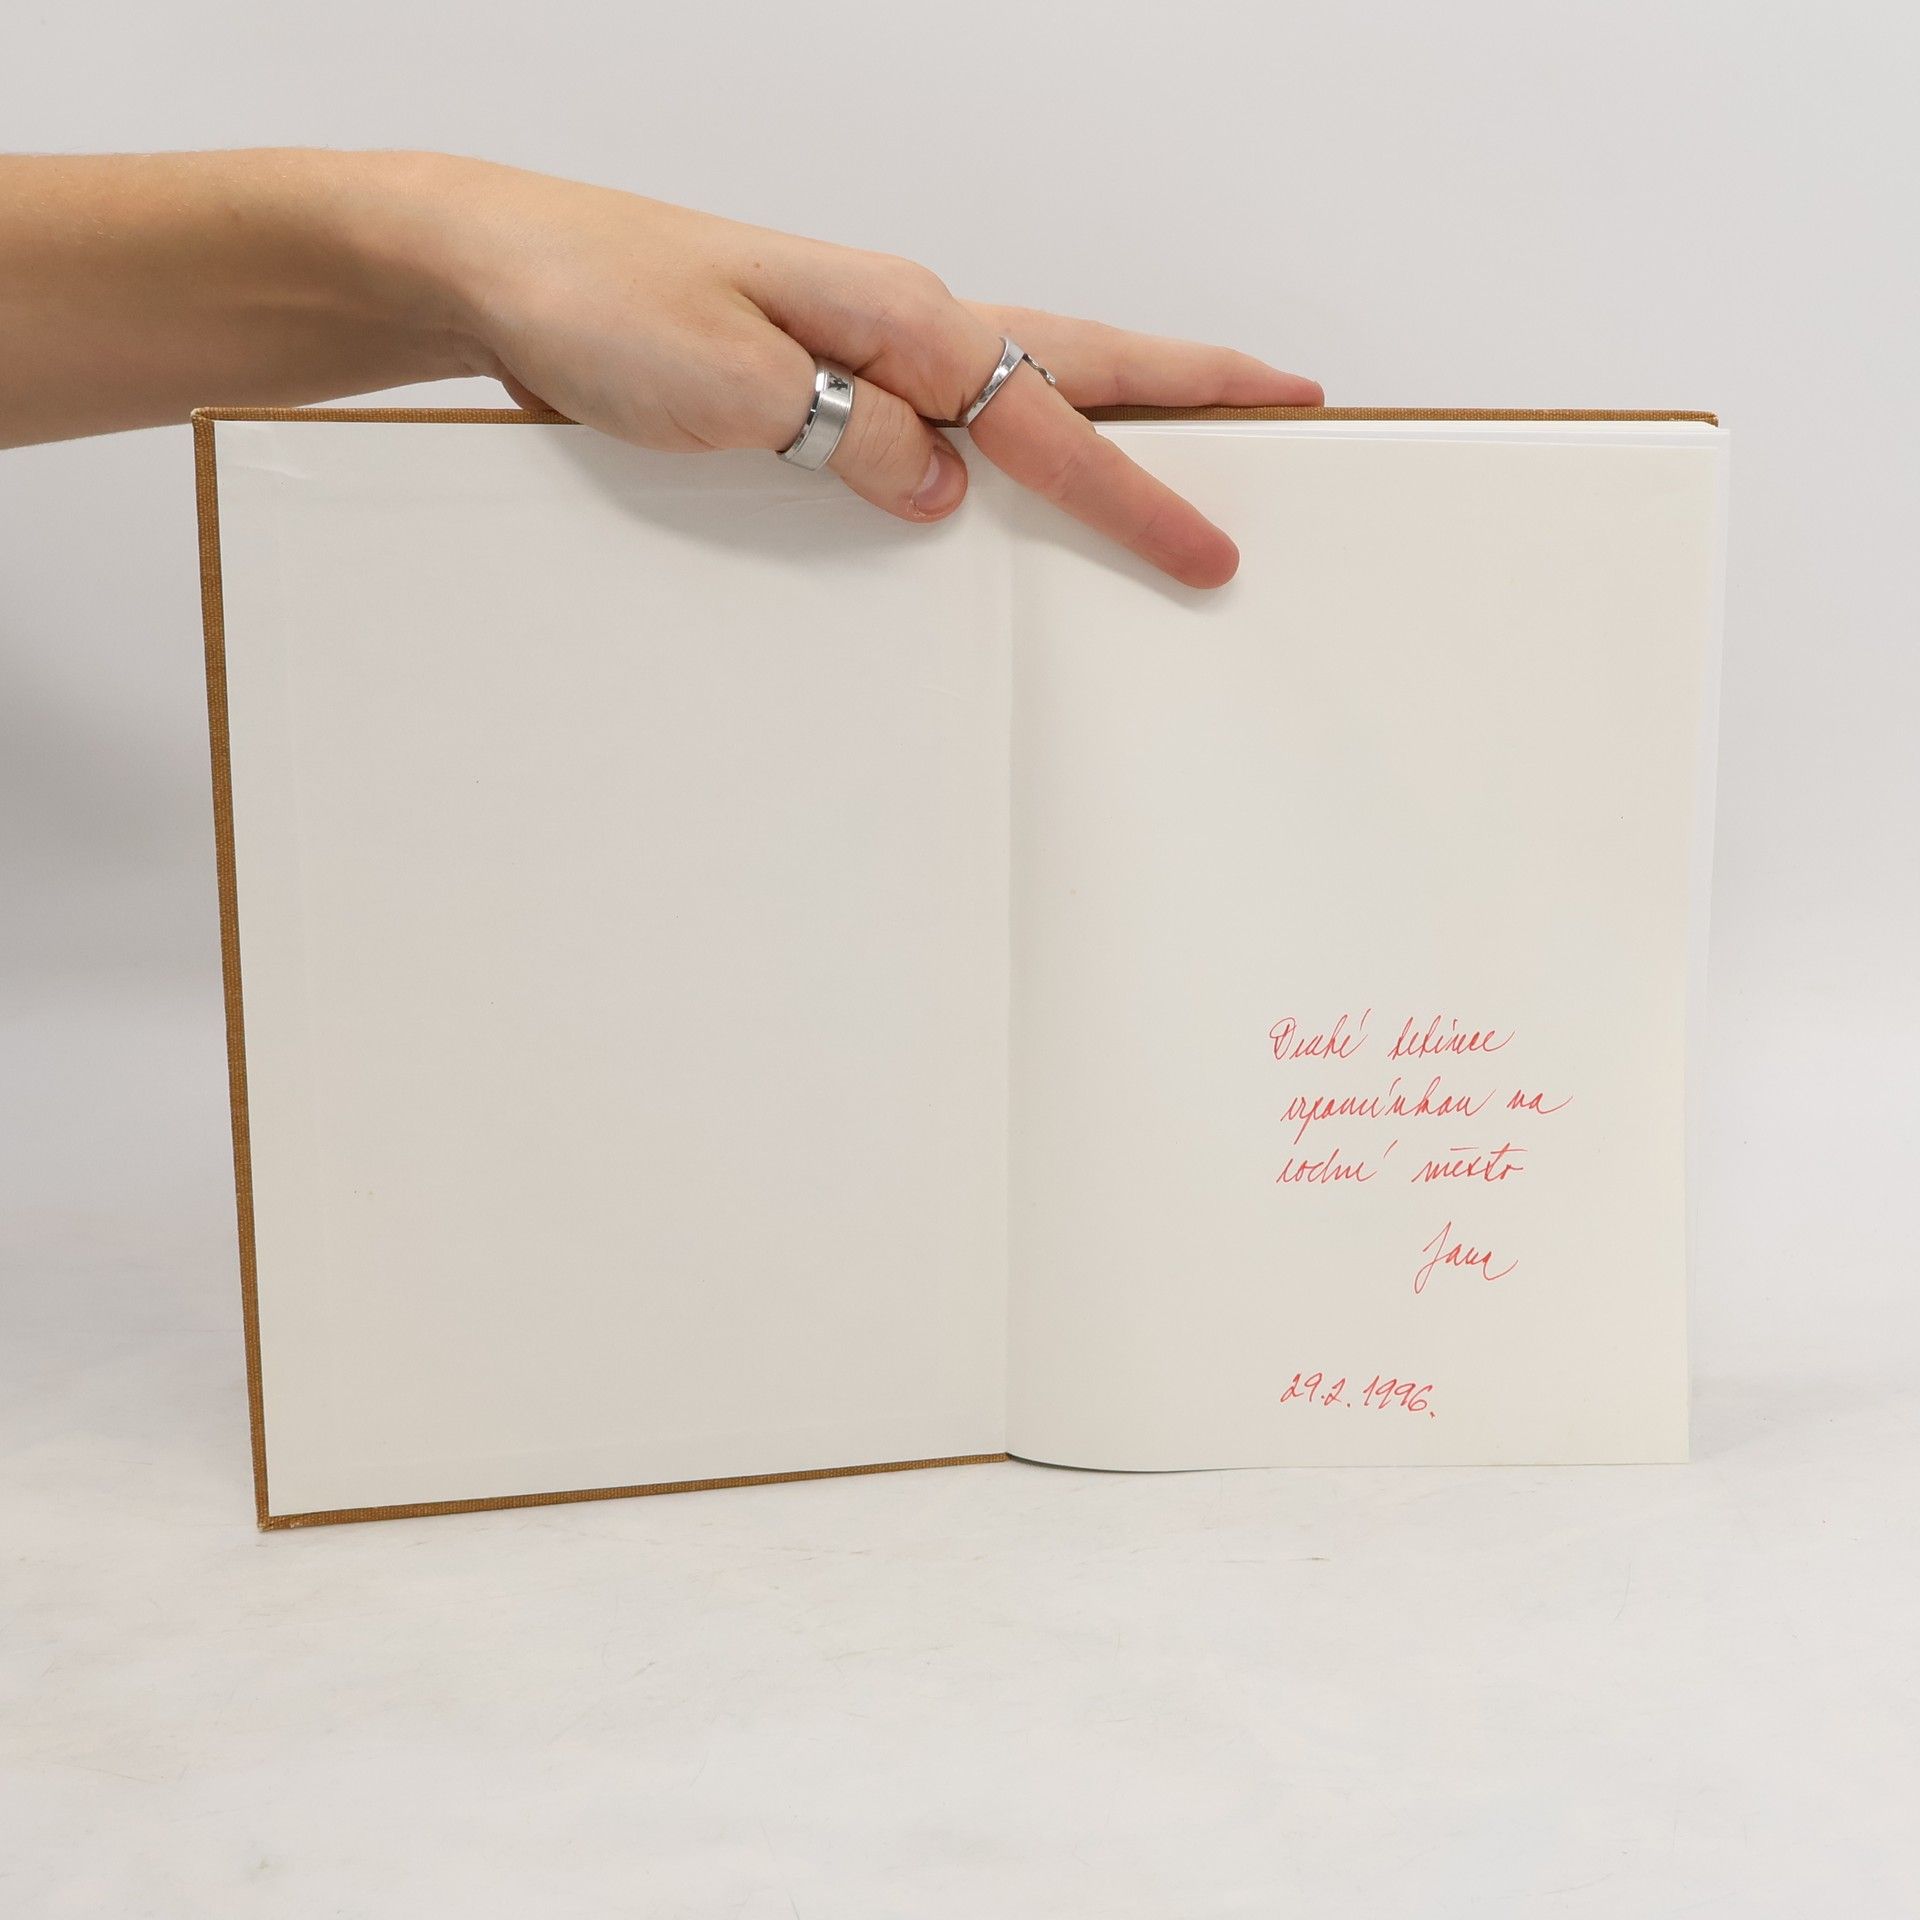 Drahé tetince
vzpomínkou na
rodné město
Jana
29.2.1996.